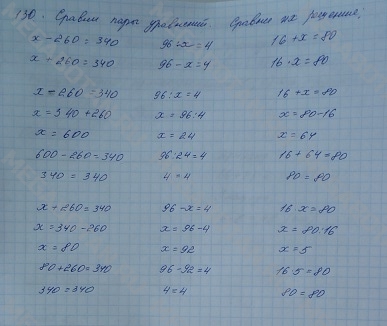 130. Сравни пары уравнений. Сравни их решение,
x - 260 = 340 96 : x = 4 16 + x = 80
x + 260 = 340 96 - x = 4 16 · x = 80
x - 260 = 340 96 : x = 4 16 + x = 80
x = 340 + 260 x = 96 : 4 x = 80 - 16
x = 600 x = 24 x = 64
600 - 260 = 340 96 : 24 = 4 16 + 64 = 80
340 = 340 4 = 4 80 = 80
x + 260 = 340 96 - x = 4 16 x = 80
x = 340 - 260 x = 96 - 4 x = 80 : 16
x = 80 x = 92 x = 5
80 + 260 = 340 96 - 92 = 4 16 · 5 = 80
340 = 340 4 = 4 80 = 80